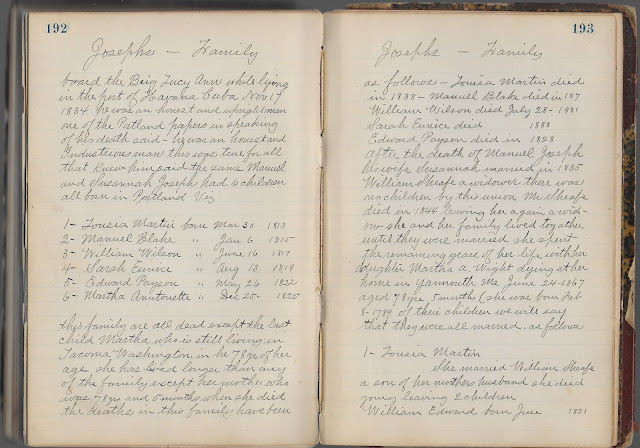 192
Josephs - Family
board the Brig Lucy Ann while lying
in the port of Havana Cuba Nov 17
1834 he was an honest and upright man
one of the Portland papers in speaking
of his death said - he was an honest and
Industrious man this was true for all
that knew him said the same Manuel
and Susannah Joseph had 6 children
all born in Portland Viz
1- Louisa Martin born Mar 30 1813
2- Manuel Blake " Jan 6 1815
3- William Wilson " June 16 1817
4- Sarah Eunice " Aug 13 1819
5- Edward Payson " May 26 1822
6- Martha Anntonette " Dec 25- 1825
this family are all dead except the last
child Martha who is still living in
Tacoma Washington in he 78 yr of her
age she has lived longer than any
of the family except her mother who
was 78 yrs and 5 months when she died
the deaths in this family have been
193
Josephs - Family
as follows - Louisa Martin died
in 1838 - Manuel Blake died in 187
William Wilson died July 28- 1881
Sarah Eunice died 1888
Edward Payson died in 1898
after the death of Manuel Joseph
his wife Susannah married in 1835
William Sheafe a widower there was
no children by this union Mr Sheafe
died in 1844 leaving her again a wid-
ow she and her family lived together
until they were married she spent
the remaining years of her life with her
daughter Martha A. Wight dying at her
home in Yarmouth Me June 24-1867
aged 78 yrs 5 months (she was born Feb
8-1789 of their children we will say
that they were all married. as follows
1- Louisa Martin
She married William Sheafe
a son of her mothers husband she died
young leaving 2 children
William Edward born June 1831